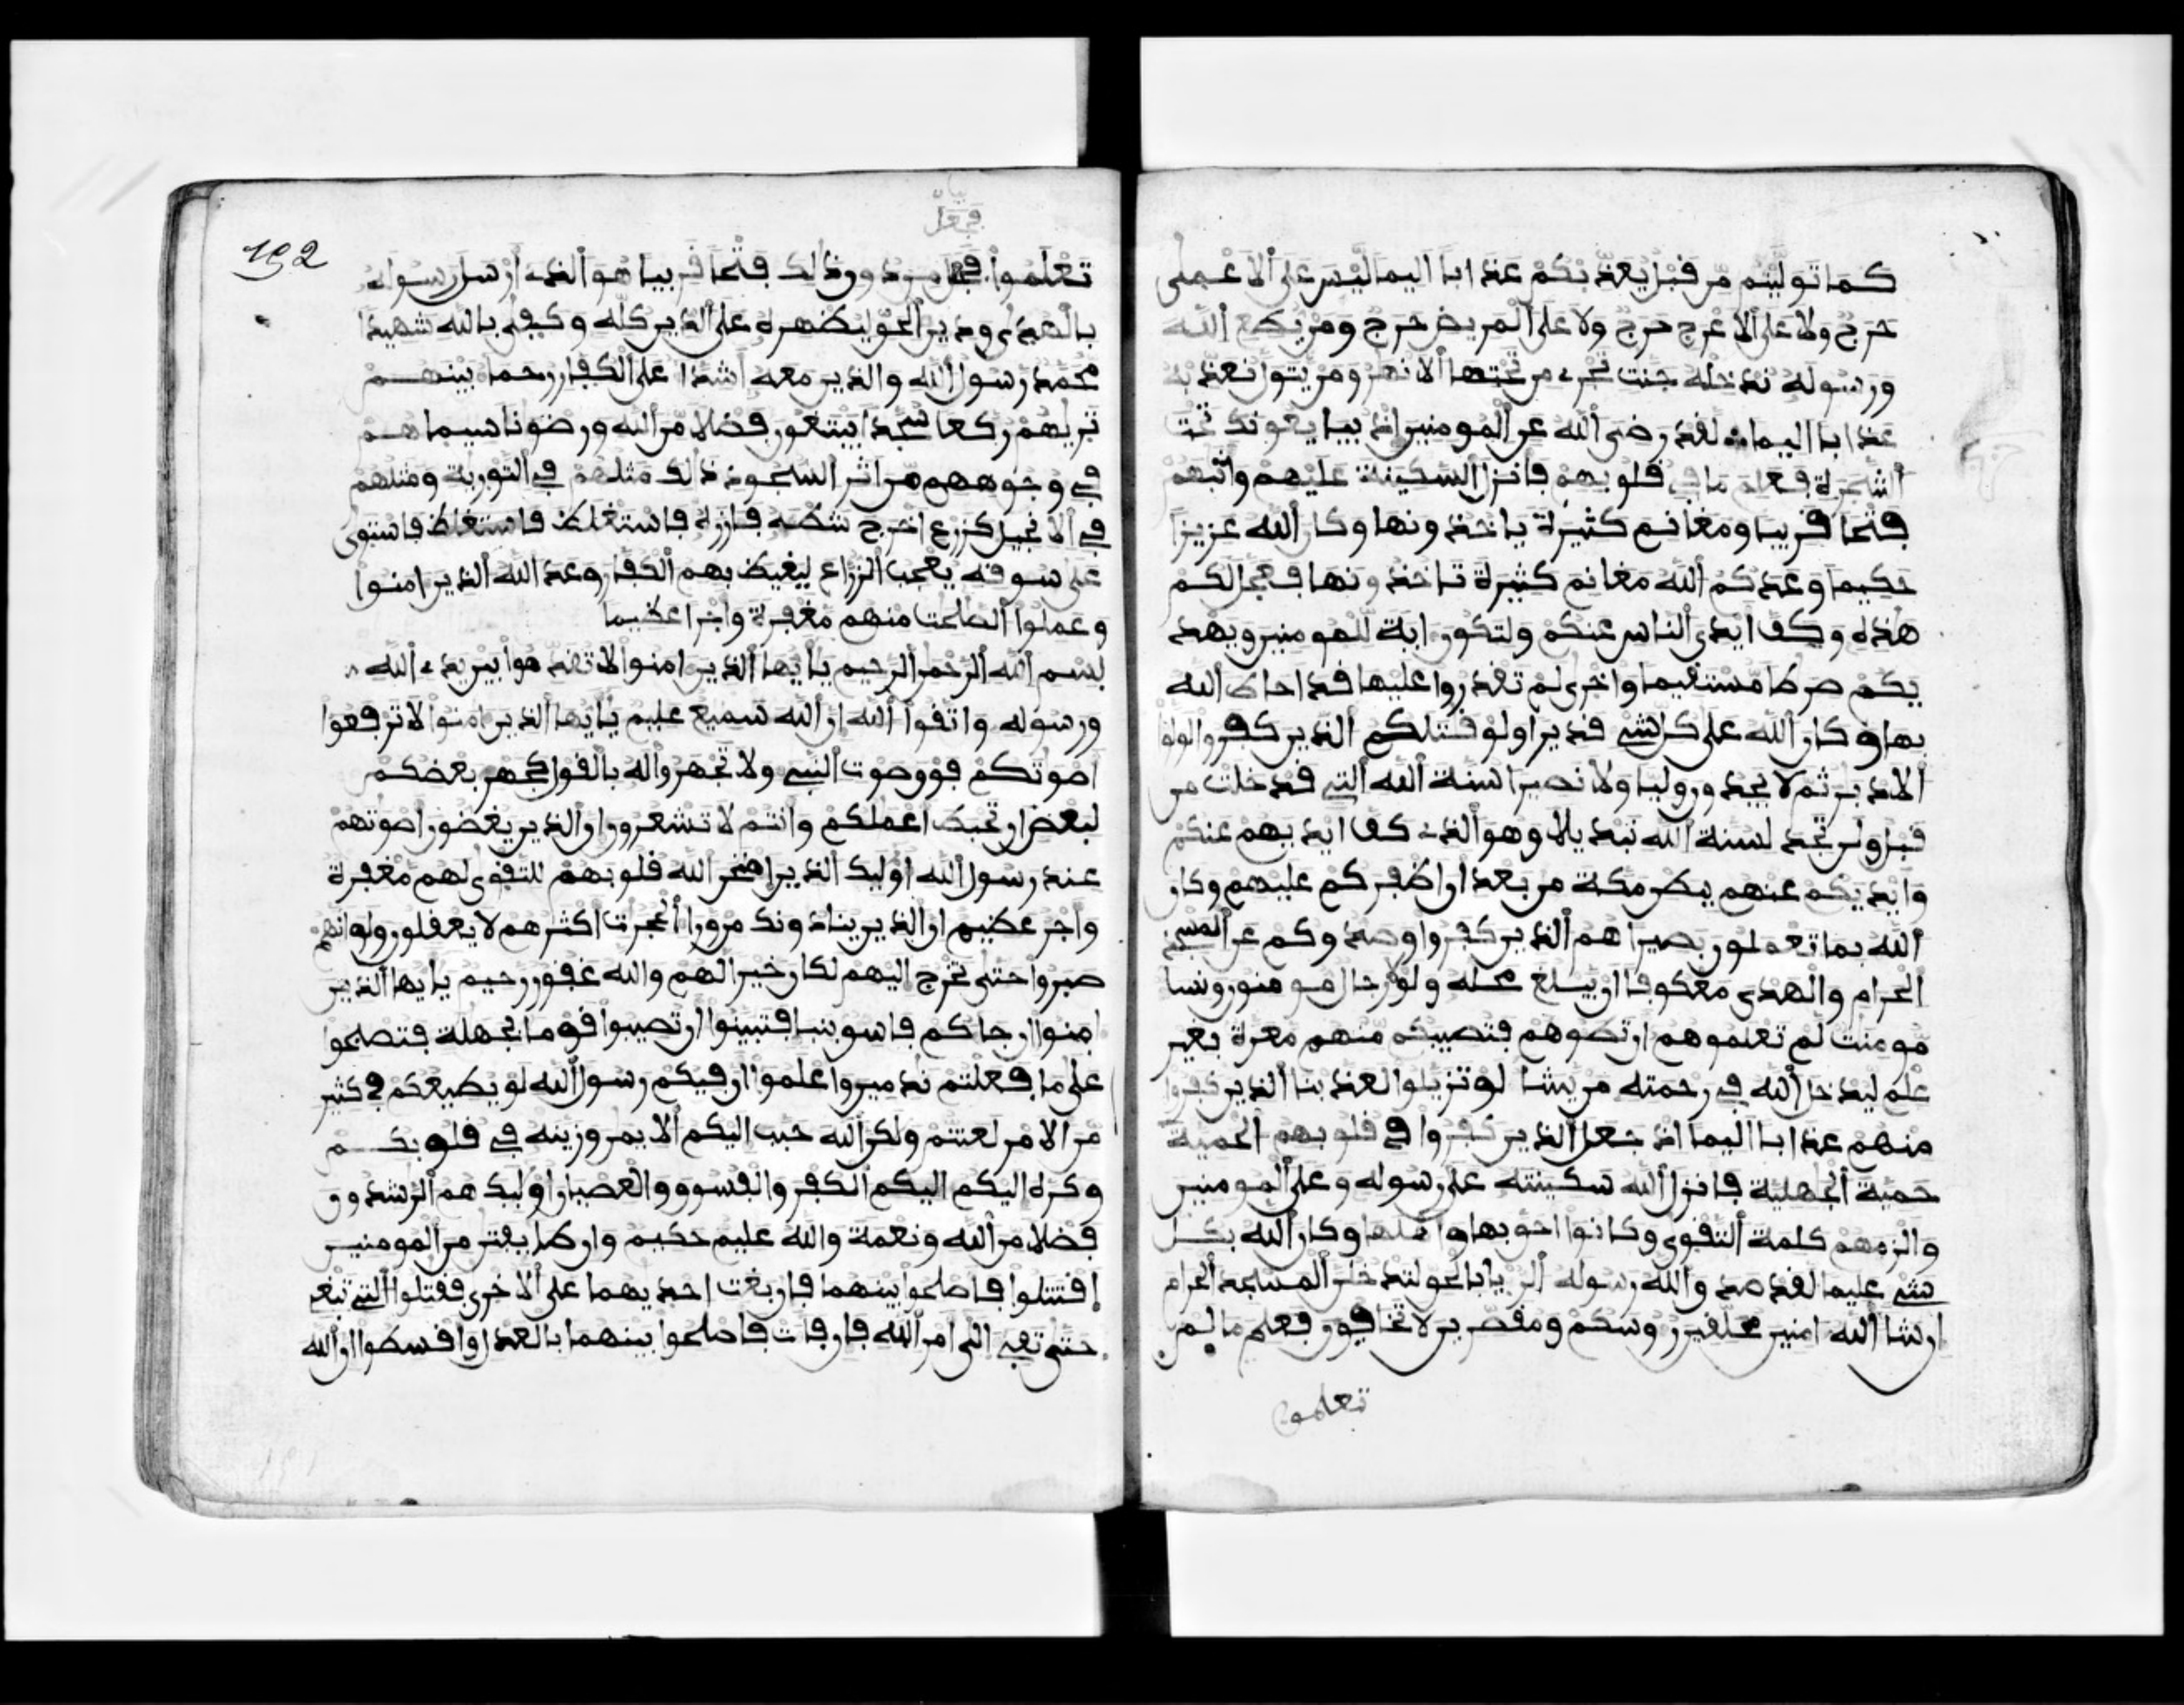 كما توليتم من قبل يعذبكم عذابا اليما ليس على الاعمى
حرج ولا على الاعرج حرج ولا على المريض حرج ومن يطع الله
ورسوله ندخله جنت تجرى من تحتها الانهر ومن يتول نعذبه
عذابا اليما لقد رضى الله عن المومنين اذ يبايعونك تحت
الشجرة فعلم ما فى قلوبهم فانزل السكينة عليهم واثبهم
فتحا قريبا ومغانم كثيرة ياخذونها وكان الله عزيزا
حكيما وعدكم الله مغانم كثيرة تاخذونها فعجل لكم
هذه وكف ايدى الناس عنكم ولتكون اية للمومنين ويهد
يكم صرطا مستقيما واخرى لم تقدروا عليها قد احاط الله
بها وكان الله على كل شىء قديرا ولو قتلكم الذين كفروا لولوا
الادبر ثم لا يجدون وليا ولا نصيرا سنة الله التى قد خلت من
قبل ولن تجد لسنة الله تبديلا وهو الذى كف ايديهم عنكم
وايديكم عنهم ببطن مكة من بعد ان اظفركم عليهم وكان
الله بما تعملون بصيرا هم الذين كفروا وصدوكم عن المسجد
الحرام والهدى معكوفا ان يبلغ محله ولولا رجال مومنون ونسا
مومنت لم تعلموهم ان تطوهم فتصيبكم منهم معرة بغير
علم ليدخل الله فى رحمته من يشا لو تزيلوا لعذبنا الذين كفروا
منهم عذابا اليما اذ جعل الذين كفروا فى قلوبهم الحمية
حمية الجهلية فانزل الله سكينته على رسوله وعلى المومنين
والزمهم كلمة التقوى وكانوا احق بها واهلها وكان الله بكل
شىء عليما لقد صدق الله رسوله الريا بالحق لتدخلن المسجد الحرام
ان شا الله امنين محلقين روسكم ومقصرين لا تخافون فعلم ما لم
تعلمون
فجعل
تعلموا فجعل من دون ذالك فتحا قريبا هو الذى ارسل رسوله
بالهدى ودين الحق ليظهره على الدين كله وكفى بالله شهيدا
محمد رسول الله والذين معه اشدا على الكفار رحما بينهم
تريهم ركعا سجدا يبتغون فضلا من الله ورضونا سيماهم
فى وجوههم من اثر السجود ذالك مثلهم فى التورية ومثلهم
فى الانجيل كزرع اخرج شطه فازره فاستغلظ فاستغلظ فاستوى
على سوقه يعجب الزراع ليغيظ بهم الكفار وعد الله الذين امنوا
وعملوا الصلحت منهم مغفرة واجرا عظيما
بسم الله الرحمن الرحيم يايها الذين امنوا لا تقدموا بين يدى الله
ورسوله واتقوا الله ان الله سميع عليم يايها الذين امنوا لا ترفعوا
اصوتكم فوق صوت النبى ولا تجهروا له بالقول كجهر بعضكم
لبعض ان تحبط اعملكم وانتم لا تشعرون ان الذين يغضون اصوتهم
عند رسول الله اوليك الذين امتحن الله قلوبهم للتقوى لهم مغفرة
واجر عظيم ان الذين ينادونك من ورا الحجرت اكثرهم لا يعقلون ولو انهم
صبروا حتى تخرج اليهم لكان خيرا لهم والله غفور رحيم يايها الذين
امنوا ان جاكم فاسق بنبا فتبينوا ان تصيبوا قوما بجهلة فتصبحوا
على ما فعلتم ندمين واعلموا ان فيكم رسول الله لو يطيعكم فى كثير
من الامر لعنتم ولكن الله حبب اليكم الايمن وزينه فى قلوبكم
وكره اليكم اليكم الكفر والفسوق والعصيان اوليك هم الرشدون
فضلا من الله ونعمة والله عليم حكيم وان طايفتن من المومنين
اقتتلوا فاصلحوا بينهما فان بغت احديهما على الاخرى فقتلوا التى تبغى
حتى تفى الى امر الله فان فات فاصلحوا بينهما بالعدل واقسطوا ان الله
192